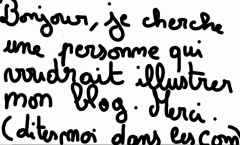 Bonjour, je cherche
une personne qui
vrudrait illustrer
mon blog. Merci.
(dites, moi dans les com)